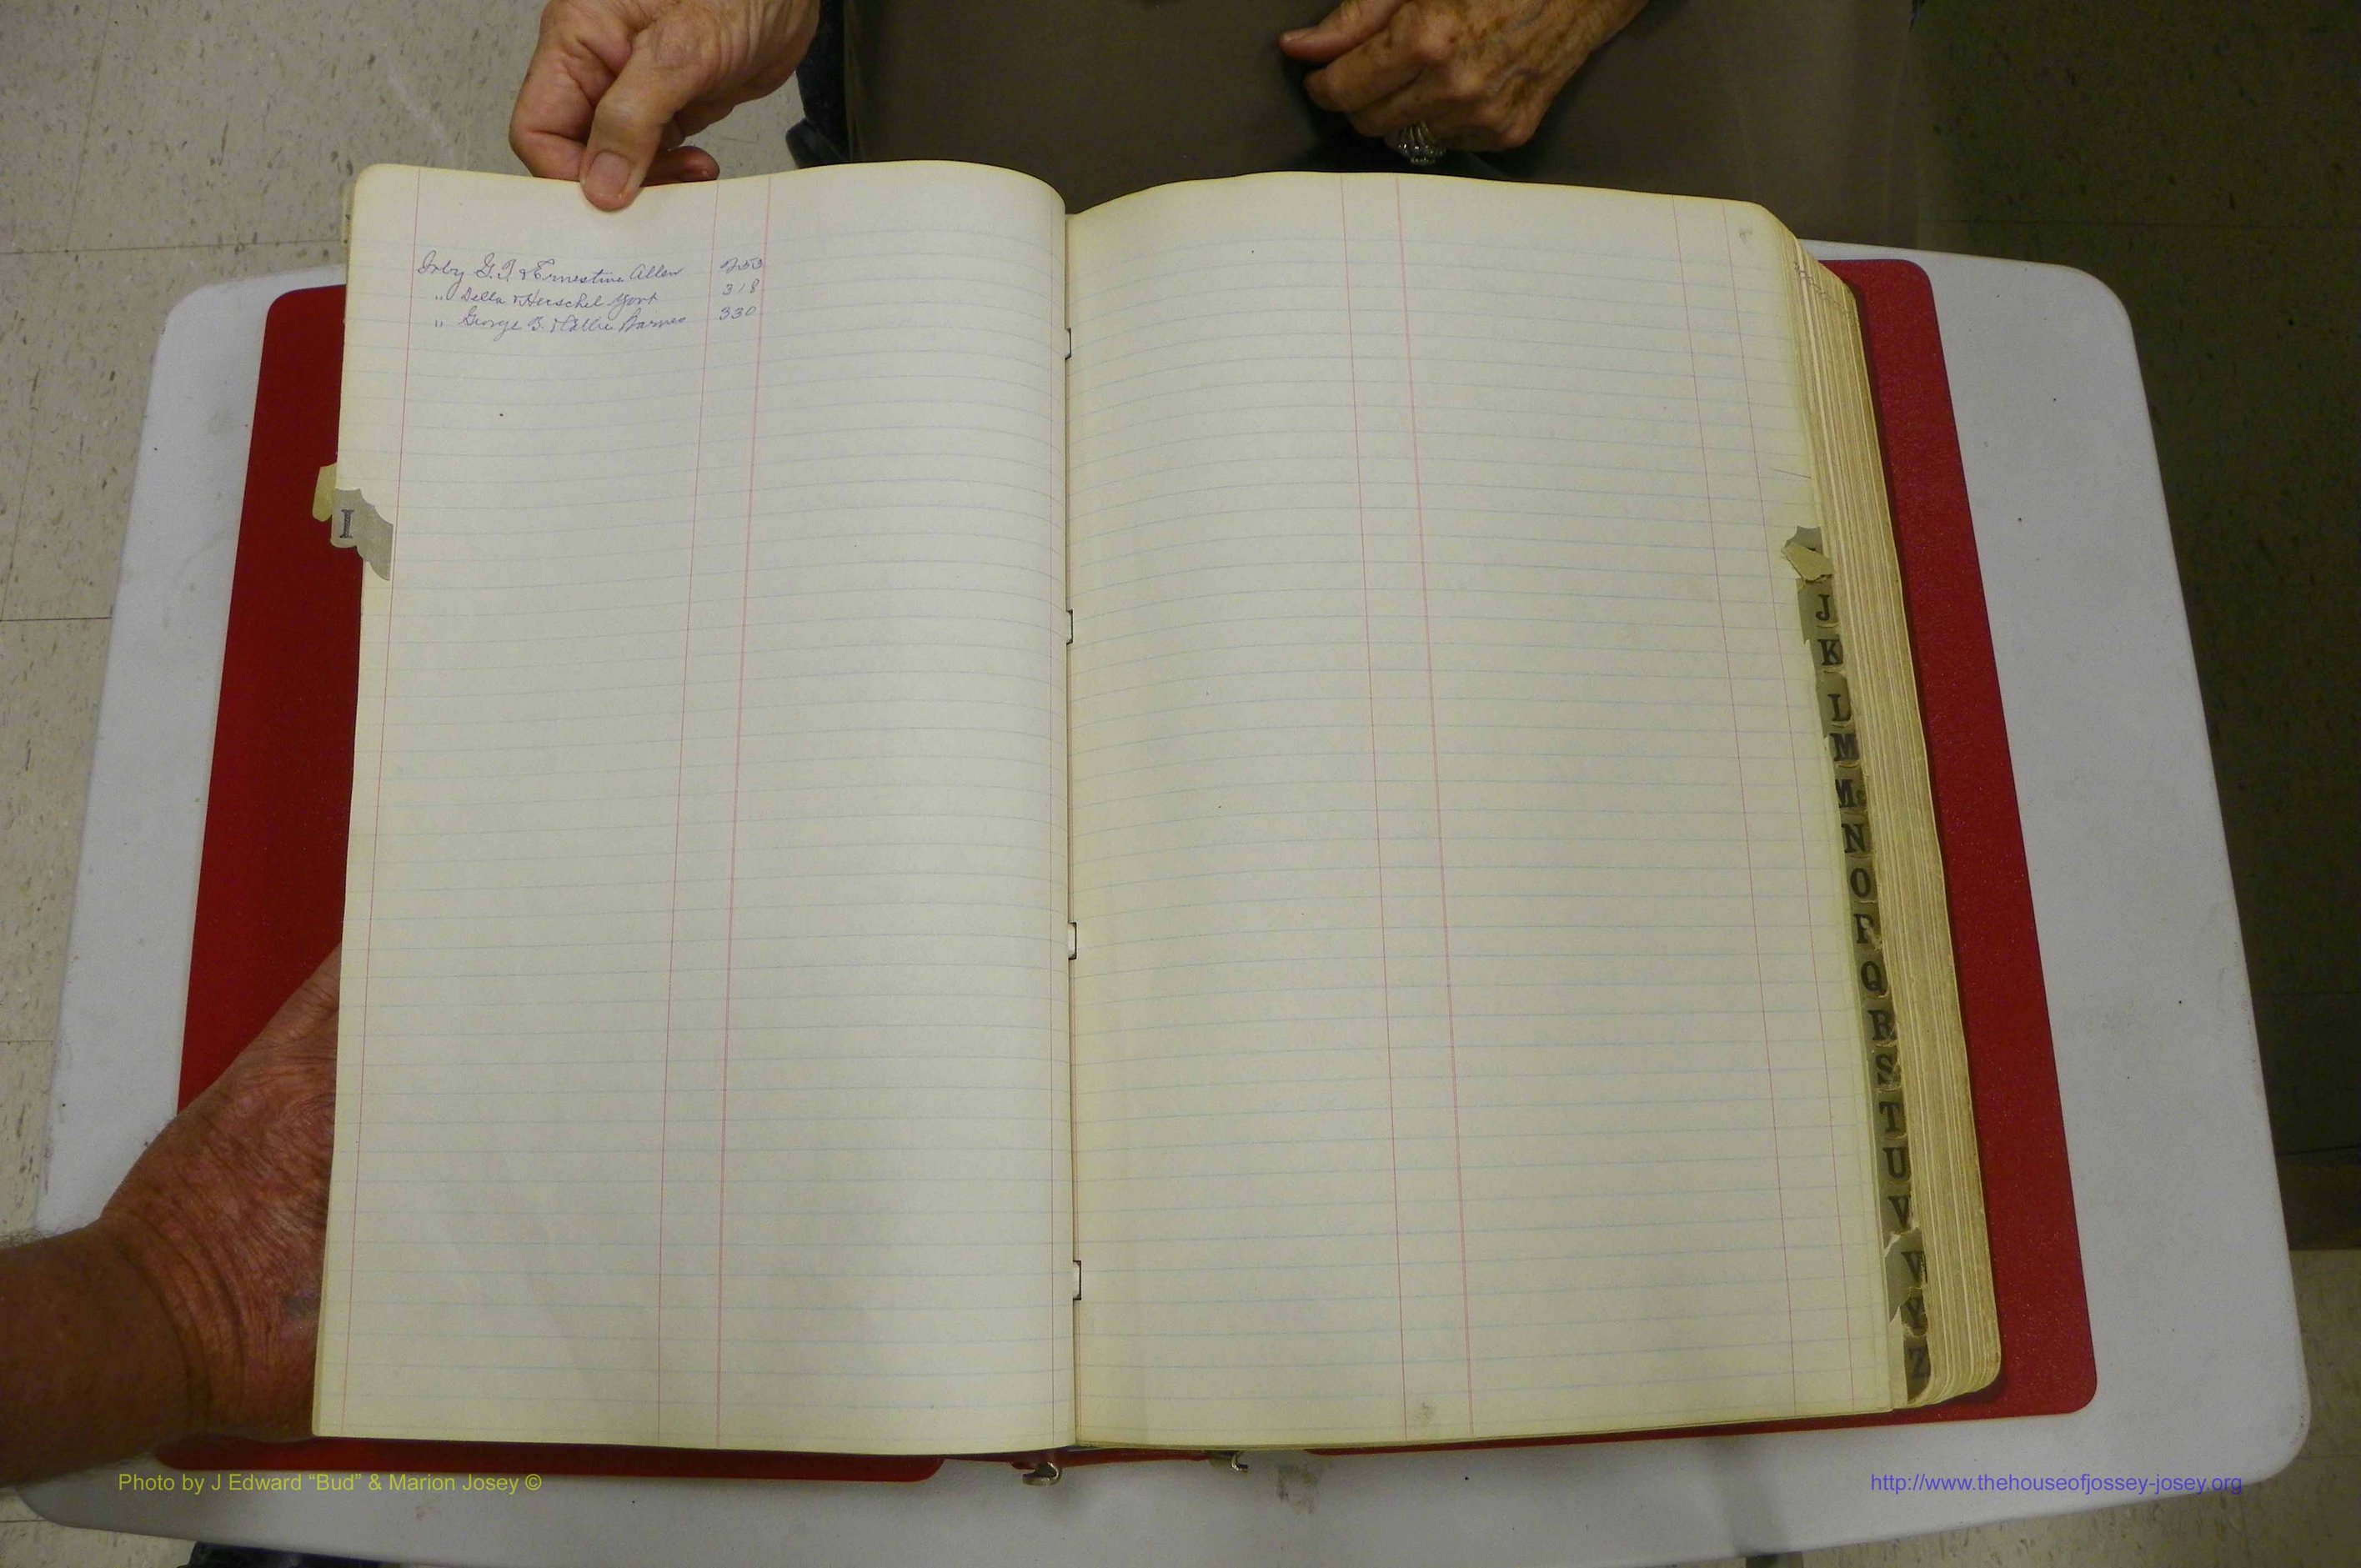 Irby G. T. & Ernestine Allen 253
" Della & Herschel York 318
" George B. & Ellie Barnes 330
I
J
K
L
M
Mc
N
O
P
Q
R
S
T
U
V
W
Y
Z
Photo by J Edward “Bud” & Marion Josey ©
http://www.thehouseofjossey-josey.org